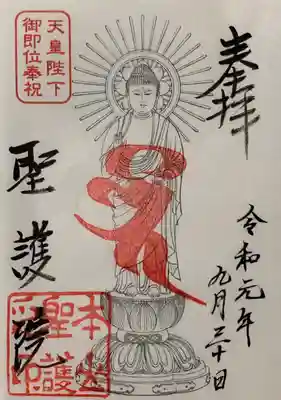 奉拝
令和元年
九月三十日
天皇陛下
御即位奉祝
聖護院
本
聖護